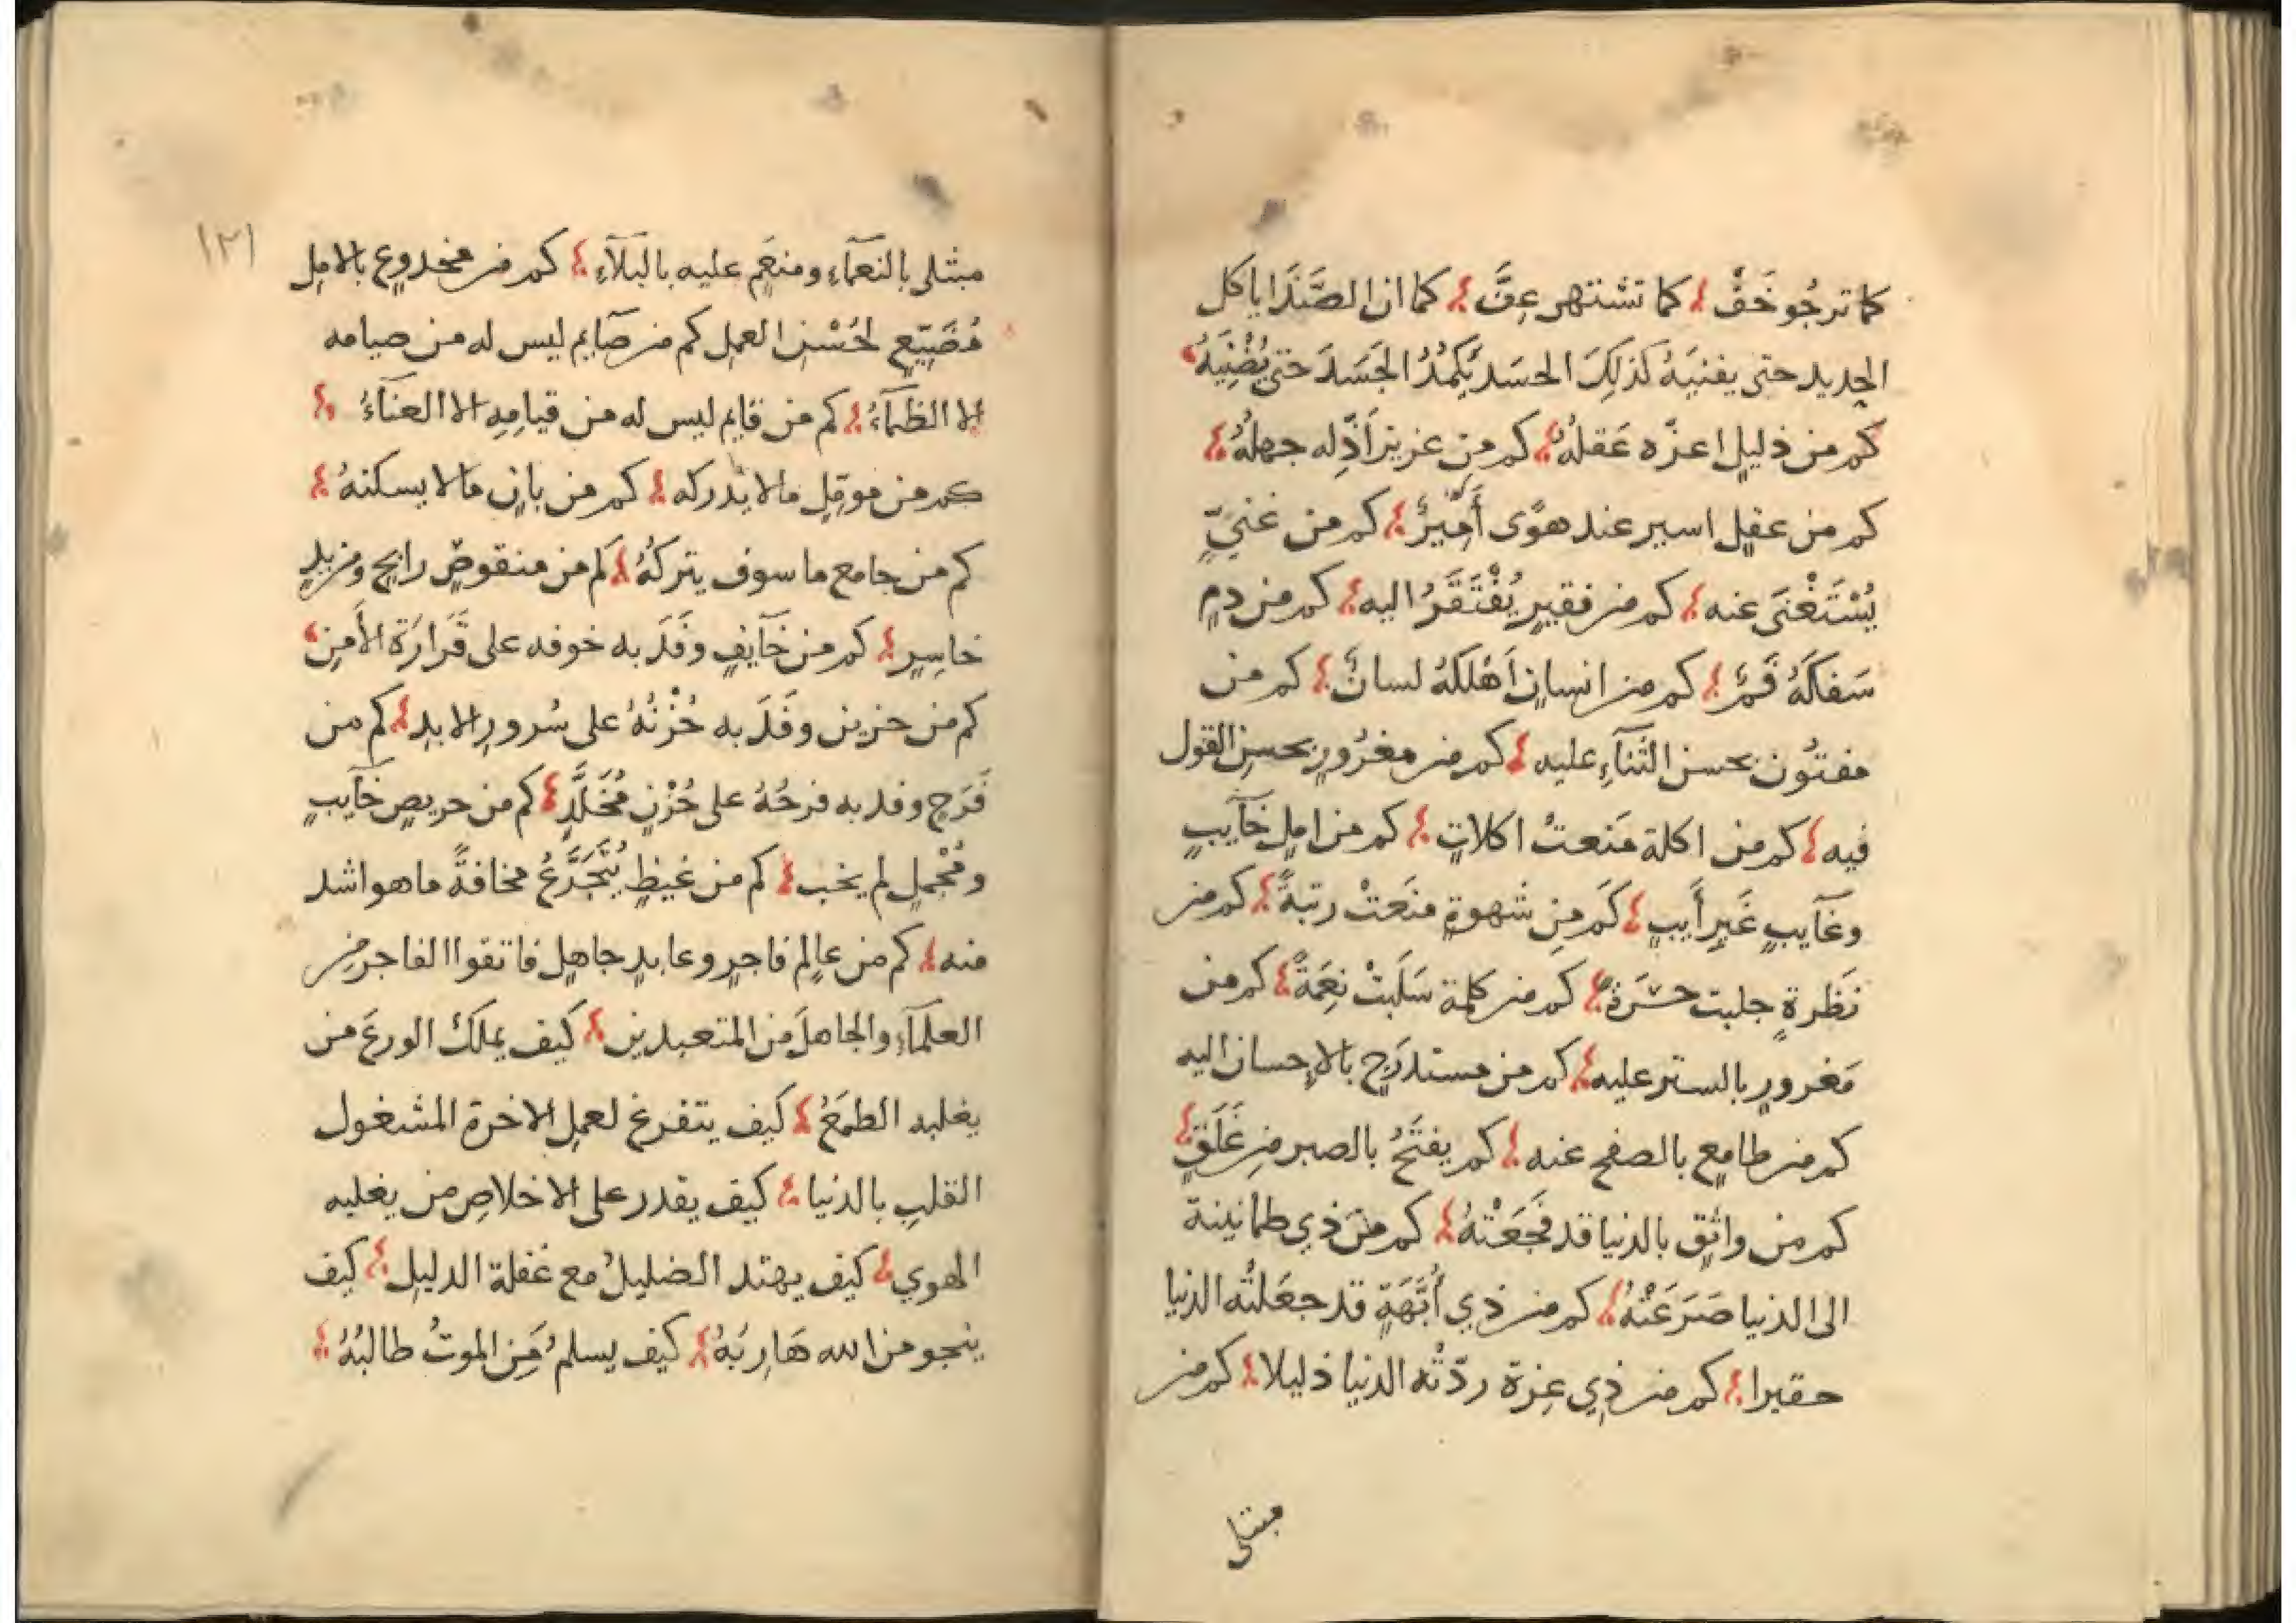 كما ترجُو خَفْ كما تشتهى عِفَّ كما ان الصَّدَا ياكل
الحديد حتى يفنيَهُ كذلِكَ الحسَد يُكمِدُ الجَسَدَ حتى يُضْنِيَهُ
كم من ذليل اعزّه عَقلهُ كم من عزيز اَذّله جهلهُ
كم من عقل اسير عند هوًى أَمِيرٌ كم من غنيّ
يُسْتَغْنَى عنه كم من فقيرٍ يُفْتَقَرُ اليه كم من دمٍ
سَفكَهُ فَمٌ كم من انسانٍ اَهْلكَهُ لسانٌ كم من
مفتُون بحسن الثَّناءِ عليه كم من مغرُورٍ بحسنِ القول
فيه كم من اكلة مَنعتْ اكلاتٍ كم من املٍ خآيبٍ
وغآيبٍ غَيرِ أَيبٍ كَم مِن شهوةٍ منَعتْ رتبةً كم من
نَظرةٍ جلبت حسْرَةً كم من كلمة سَلَبتْ نِعَمةً كم من
مَغرورٍ بالستر عليه كم من مستدرَجٍ بالاِحسان اليه
كم من طامعٍ بالصفح عنه كم يفتَحُ بالصبر من غَلَقٍ
كم من واثقٍ بالدنيا قد فجَعَتْهُ كم من ذي طمانينة
الى الدنيا صَرَعَتْهُ كم من ذي أُبَّهَةٍ قد جعَلتْه الدنيا
حقيرا كم من ذي عِزة ردّتْه الدنيا ذليلا كم من
مبتلى
١٢١
مبتلى بالنعمآءِ ومنعَمٍ عليه بالبَلآءِ كم من مخدوعٍ بالامل
مُضَيّعٍ لحُسْنِ العمل كم من صآيمٍ ليس له من صيامه
الا الظمآءُ كم من قايم ليس له من قيامِهِ الا العنآءُ
كم من مومّلٍ ما لا يدركه كم من بانٍ ما لا يسكنهُ
كم من جامع ما سوف يتركهُ كم من منقوصٍ رابحٍ ومزيدٍ
خاسِرٍ كم من خآيفٍ وفَدَ به خوفه على قَرَارَة الأَمنِ
كم من حزين وفَدَ به حُزْنُهُ على سُرورِ الابدِ كم من
فَرَحٍ وفد به فرحُهُ على حُزْنٍ مُخَلَّدٍ كم من حريصٍ خآيبٍ
ومُجْملٍ لم يخب كم من غيظٍ يُتَجَرَّعُ مخافةً ما هو اشد
منه كم من عالم فاجرٍ وعابدٍ جاهلٍ فاتقوا الفاجر من
العلمآءِ والجاهلَ من المتعبدين كيف يملكُ الورعَ من
يغلبه الطمَعُ كيف يتفرغ لعملِ الاخرة المشغول
القلبِ بالدنيا كيف يقدر على الاخلاصِ من يغلبه
الهوي كيف يهتد الضليلُ مع غفلة الدليل كيف
ينجو من الله هَارِبُهُ كيف يسلمُ مَن الموتُ طالبُهُ